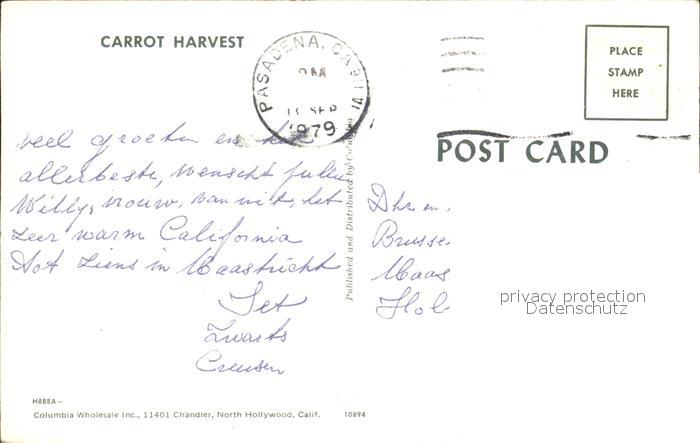 CARROT HARVEST
PASADENA, CA
PM
SEP
1979
PLACE
STAMP
HERE
POST CARD
veel groeten en het
allerbeste, wenscht jullie
Willy, vrouw, van uit, het
zeer warm California
Tot ziens in Maastricht
Jet
Zwarts
Creusen
Published and Distributed by Columbia
Dhr en
Brusse
Maas
Hol
privacy protection
Datenschutz
H888A—
Columbia Wholesale Inc., 11401 Chandler, North Hollywood, Calif. 10894